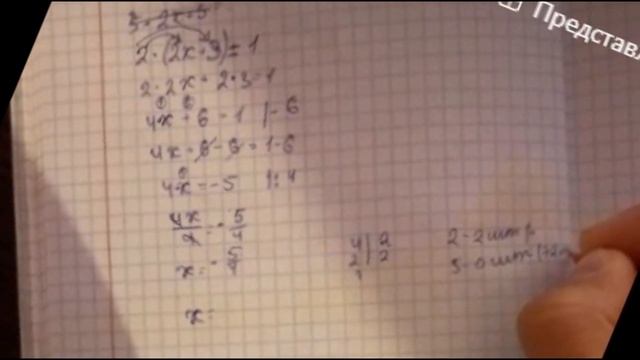 Представл
2·(2x+3)=1
2·2x+2·3=1
4x+6=1 |-6
4x+6-6=1-6
4x=-5 |:4
4x/4=-5/4
x=-5/4
x=
4|2
2|2
1
2-2шт
3-0шт